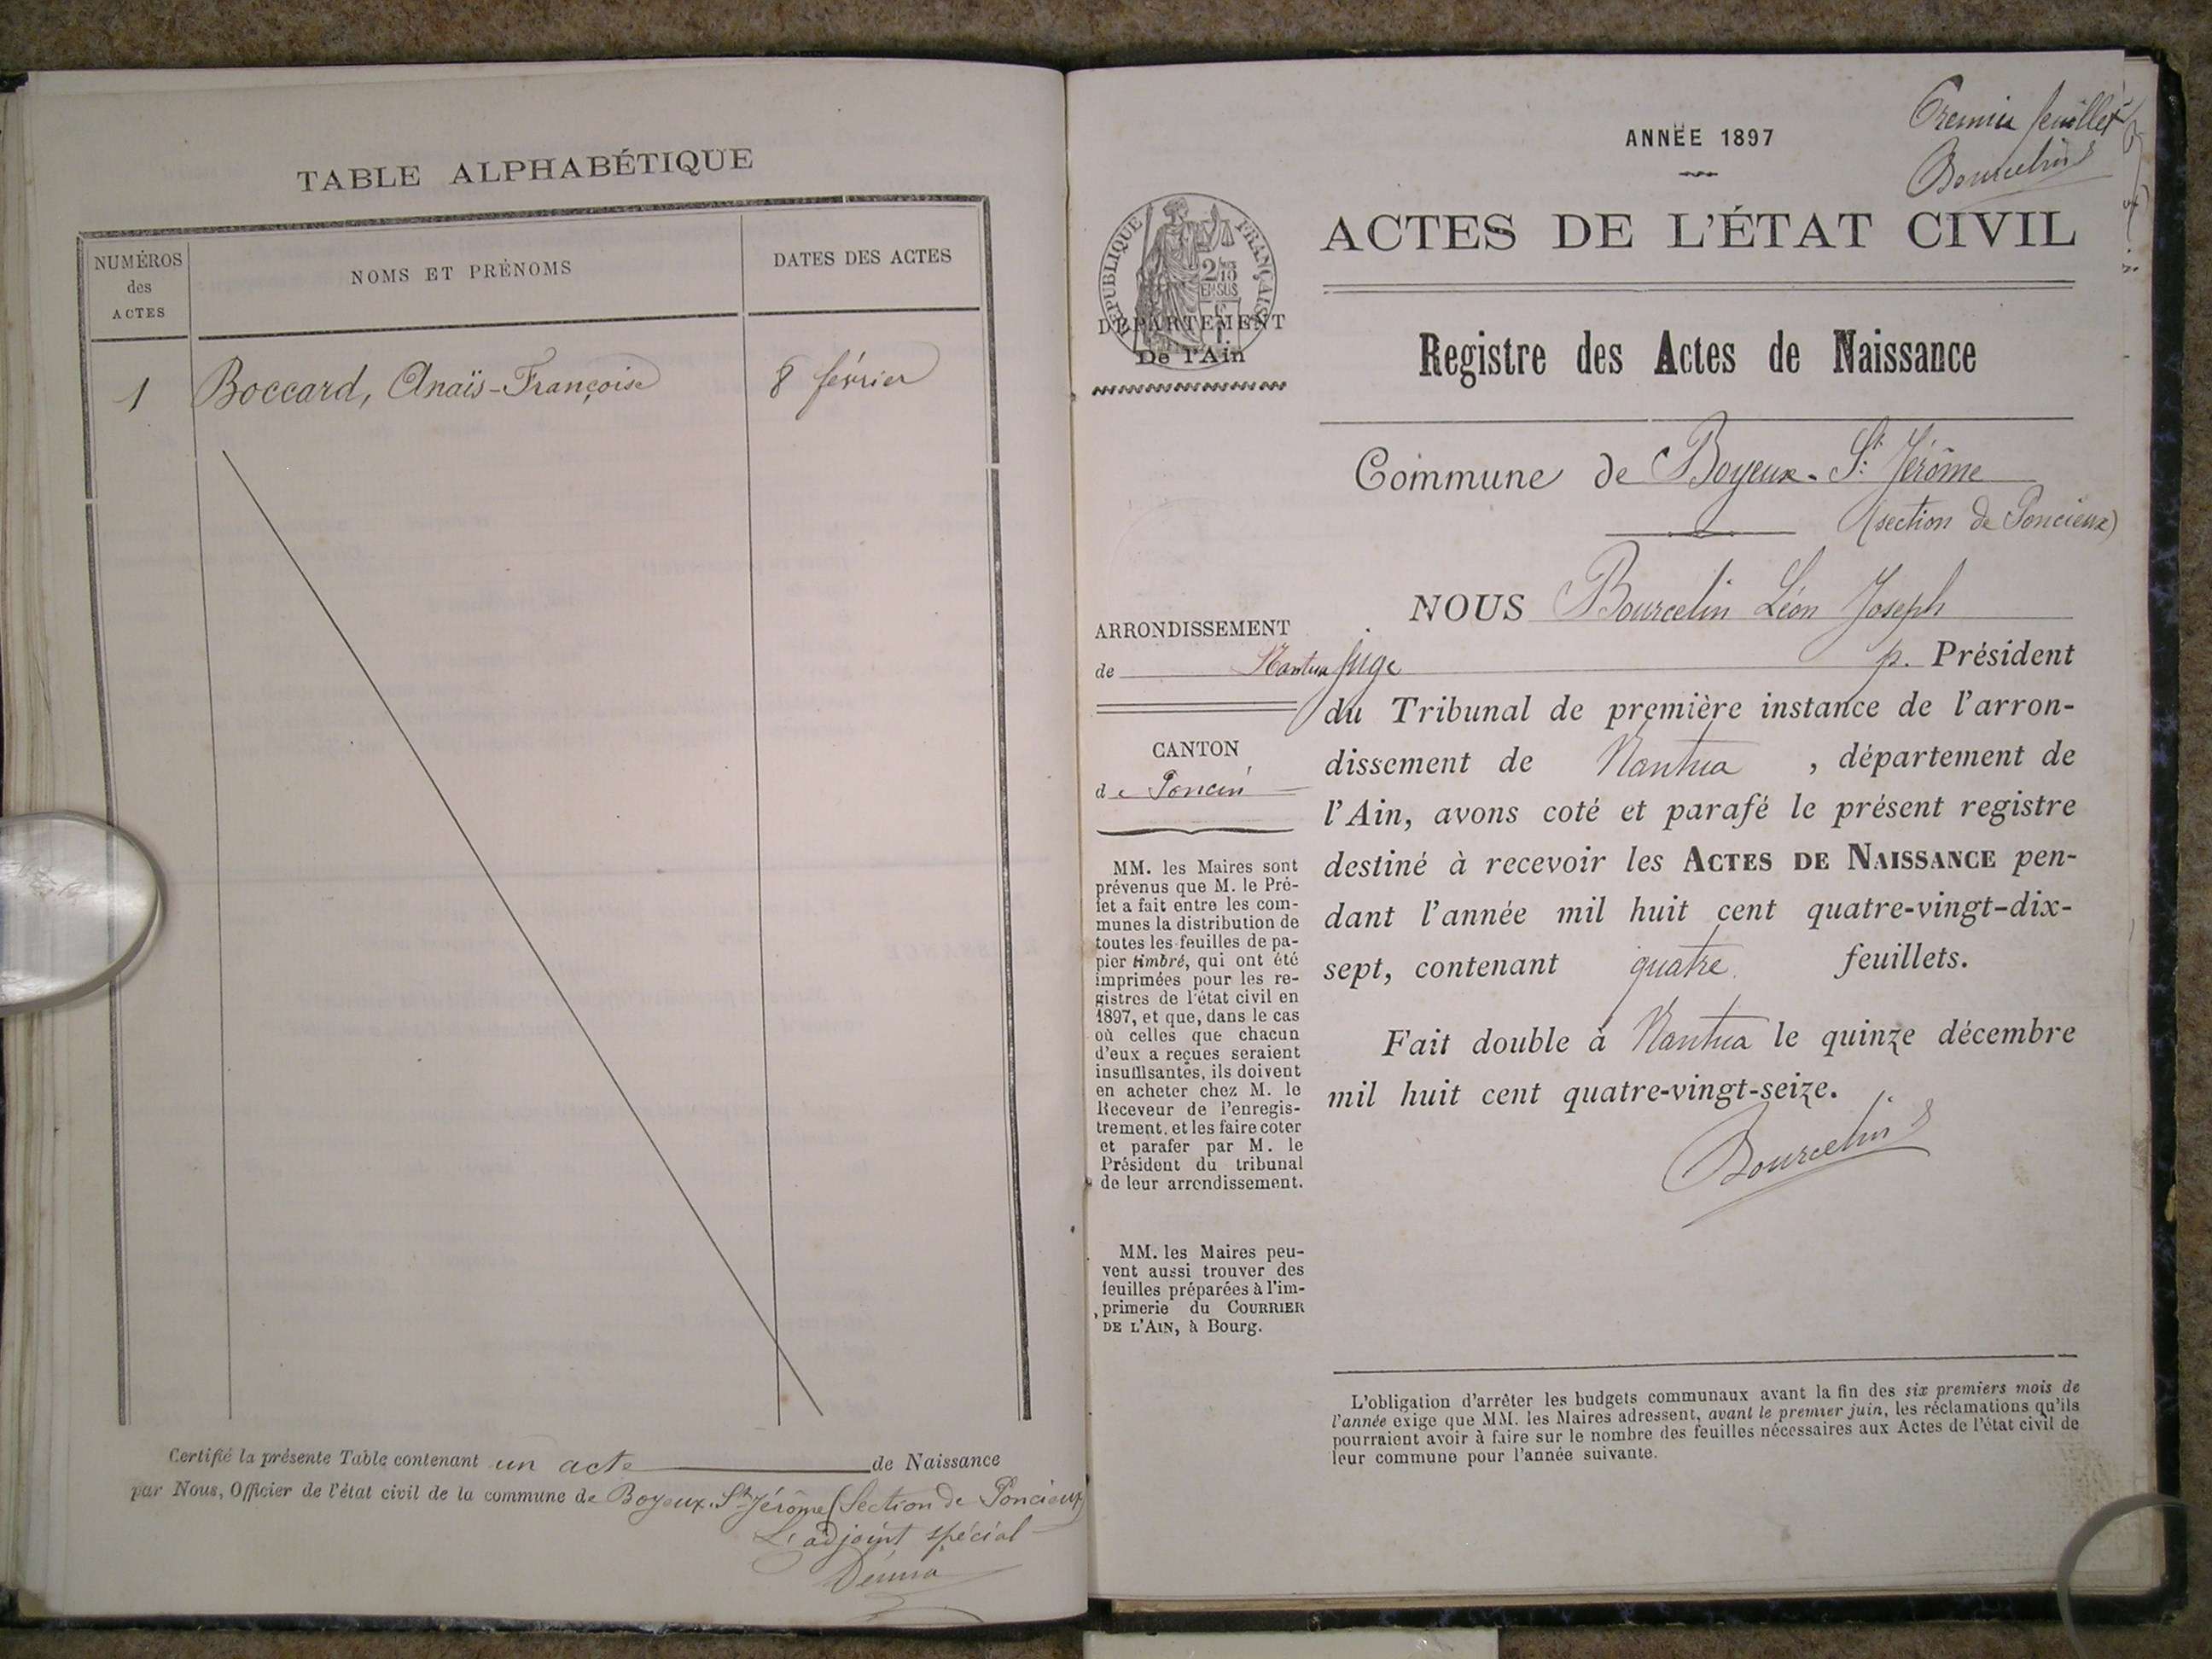 TABLE ALPHABÉTIQUE
NUMÉROS
des
ACTES
NOMS ET PRÉNOMS
DATES DES ACTES
1 Boccard, Anaïs-Françoise 8 février
Certifié la présente Table contenant un acte de Naissance
par Nous, Officier de l'état civil de la commune de Boyeux-St-Jérôme (Section de Poncieux
L'adjoint spécial
Premier feuillet
Bourcelin
ANNÉE 1897
RÉPUBLIQUE FRANÇAISE
2/10
EN SUS
DÉPARTEMENT
De l'Ain
ACTES DE L'ÉTAT CIVIL
Registre des Actes de Naissance
Commune de Boyeux-St Jérôme
(section de Poncieux)
ARRONDISSEMENT
de Nantua
CANTON
de Poncin
MM. les Maires sont
prévenus que M. le Pré-
fet a fait entre les com-
munes la distribution de
toutes les feuilles de pa-
pier timbré, qui ont été
imprimées pour les re-
gistres de l'état civil en
1897, et que, dans le cas
où celles que chacun
d'eux a reçues seraient
insuffisantes, ils doivent
en acheter chez M. le
Receveur de l'enregis-
trement, et les faire coter
et parafer par M. le
Président du tribunal
de leur arrondissement.
MM. les Maires peu-
vent aussi trouver des
feuilles préparées à l'im-
primerie du COURRIER
DE L'AIN, à Bourg.
NOUS Bourcelin Léon Joseph
Juge p. Président
du Tribunal de première instance de l'arron-
dissement de Nantua , département de
l'Ain, avons coté et parafé le présent registre
destiné à recevoir les ACTES DE NAISSANCE pen-
dant l'année mil huit cent quatre-vingt-dix-
sept, contenant quatre feuillets.
Fait double à Nantua le quinze décembre
mil huit cent quatre-vingt-seize.
Bourcelin
L'obligation d'arrêter les budgets communaux avant la fin des six premiers mois de
l'année exige que MM. les Maires adressent, avant le premier juin, les réclamations qu'ils
pourraient avoir à faire sur le nombre des feuilles nécessaires aux Actes de l'état civil de
leur commune pour l'année suivante.